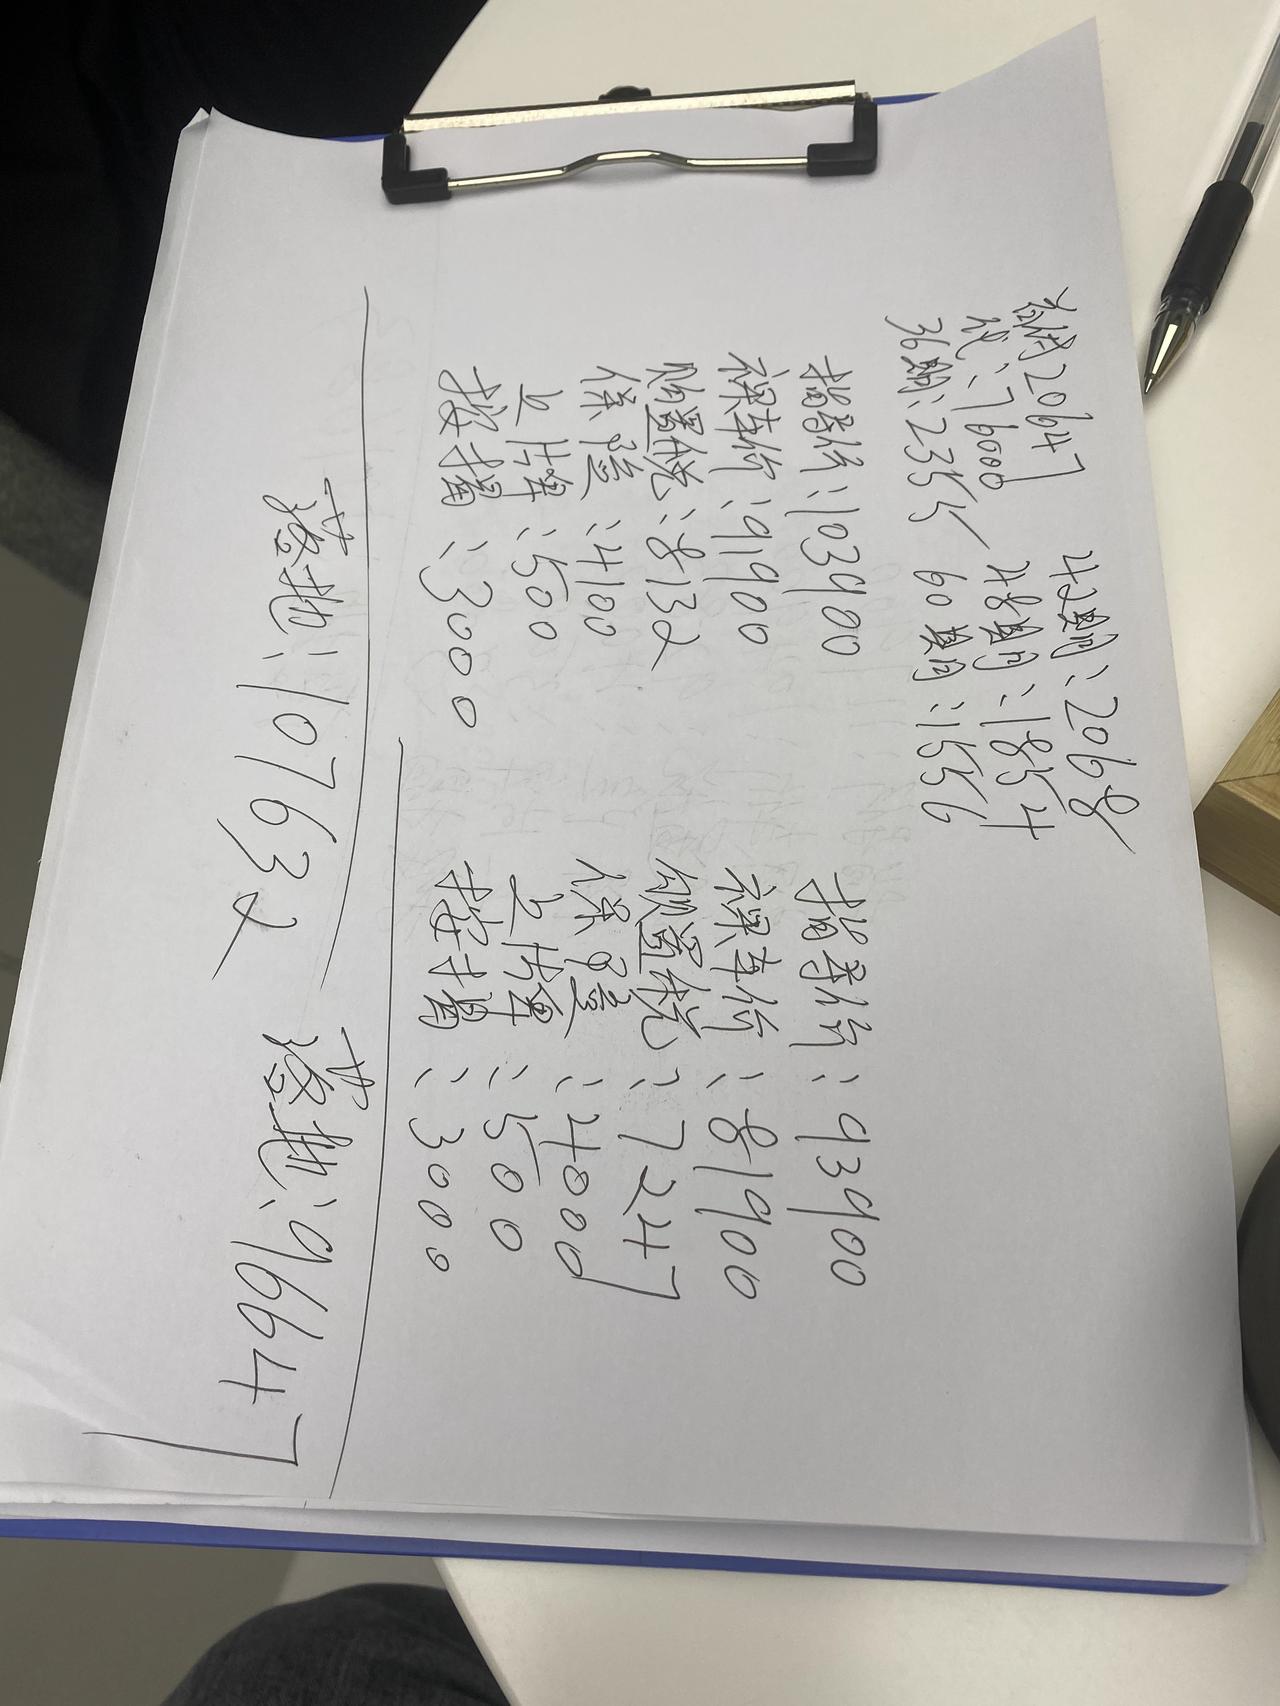 首付20647 42期:2068
代:76000 48期:1854
36期:2355 60期:1556
指导价:103900 指导价:93900
裸车价:91900 裸车价:81900
购置税:8132 购置税:7247
保险:4100 保险:4000
上牌:500 上牌:500
按揭:3000 按揭:3000
落地:107632 落地:96647